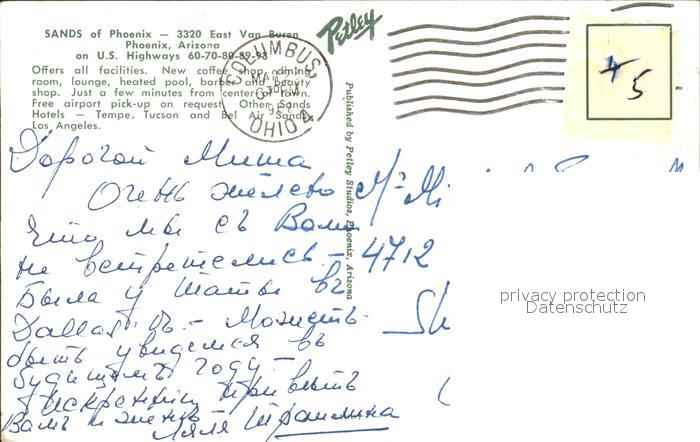 SANDS of Phoenix — 3320 East Van Buren
Phoenix, Arizona
on U.S. Highways 60-70-80-89-93
Offers all facilities. New coffee shop, dining
room, lounge, heated pool, barber and beauty
shop. Just a few minutes from center of town.
Free airport pick-up on request. Other Sands
Hotels — Tempe, Tucson and Bel Air Sands
Los Angeles.
Petley
COLUMBUS
OHIO 4
Published by Petley Studios, Phoenix, Arizona
4 5
Дорогой Миша
Очень жалею
что мы съ Вами
не встретились —
Была у Таты въ
Dallas'ѣ. — Можетъ
быть увидемся въ
будущемъ году —
Искренний приветъ
Вамъ и женѣ —
Ляля
4712
Sh
privacy protection
Datenschutz